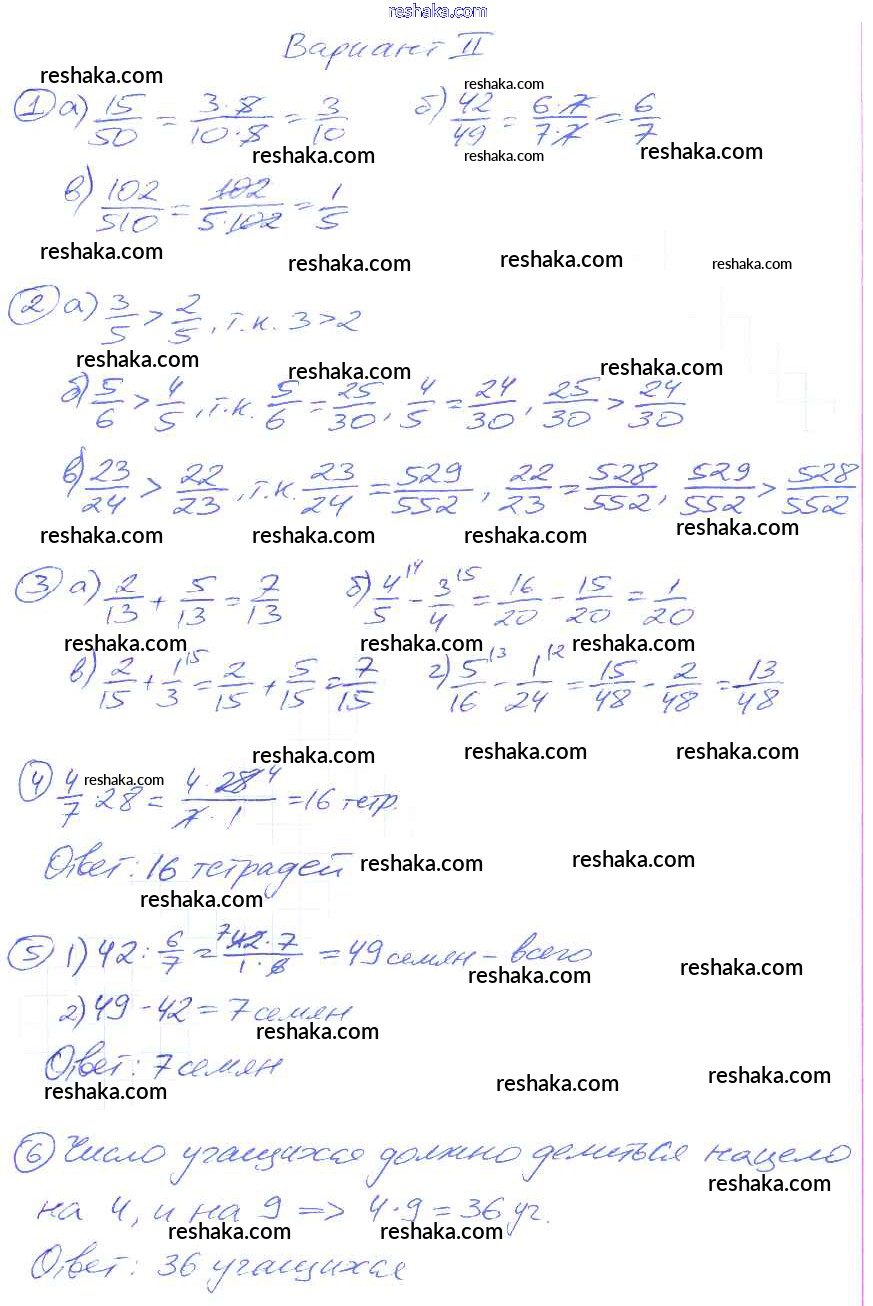 reshaka.com
Вариант II
reshaka.com reshaka.com
① а) 15/50 = 3·5/10·5 = 3/10 б) 42/49 = 6·7/7·7 = 6/7
reshaka.com reshaka.com reshaka.com
в) 102/510 = 102/5·102 = 1/5
reshaka.com reshaka.com reshaka.com reshaka.com
② а) 3/5 > 2/5, т.к. 3 > 2
reshaka.com reshaka.com reshaka.com
б) 5/6 > 4/5, т.к. 5/6 = 25/30, 4/5 = 24/30, 25/30 > 24/30
в) 23/24 > 22/23, т.к. 23/24 = 529/552, 22/23 = 528/552, 529/552 > 528/552
reshaka.com reshaka.com reshaka.com reshaka.com
③ а) 2/13 + 5/13 = 7/13 б) 4/5 |4 - 3/4 |5 = 16/20 - 15/20 = 1/20
reshaka.com reshaka.com reshaka.com
в) 2/15 + 1/3 |5 = 2/15 + 5/15 = 7/15 г) 5/16 |3 - 1/24 |2 = 15/48 - 2/48 = 13/48
reshaka.com reshaka.com reshaka.com
④ 4/7 · 28 = 4·28 4/7·1 = 16 тетр.
reshaka.com
Ответ: 16 тетрадей
reshaka.com reshaka.com reshaka.com
⑤ 1) 42 : 6/7 = 7 42·7/1·6 = 49 семян – всего
reshaka.com reshaka.com
2) 49 - 42 = 7 семян
reshaka.com
Ответ: 7 семян
reshaka.com reshaka.com reshaka.com
⑥ Число учащихся должно делиться нацело
reshaka.com
на 4, и на 9 => 4·9 = 36 уч.
reshaka.com reshaka.com
Ответ: 36 учащихся